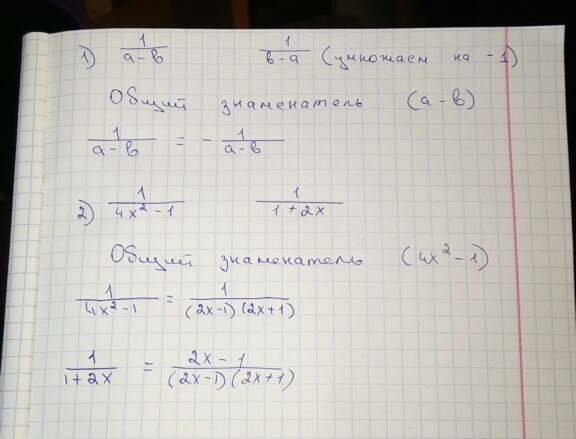 1) 1/(a-b) 1/(b-a) (умножаем на -1)
Общий знаменатель (a-b)
1/(a-b) = - 1/(a-b)
2) 1/(4x²-1) 1/(1+2x)
Общий знаменатель (4x²-1)
1/(4x²-1) = 1/((2x-1)(2x+1))
1/(1+2x) = (2x-1)/((2x-1)(2x+1))